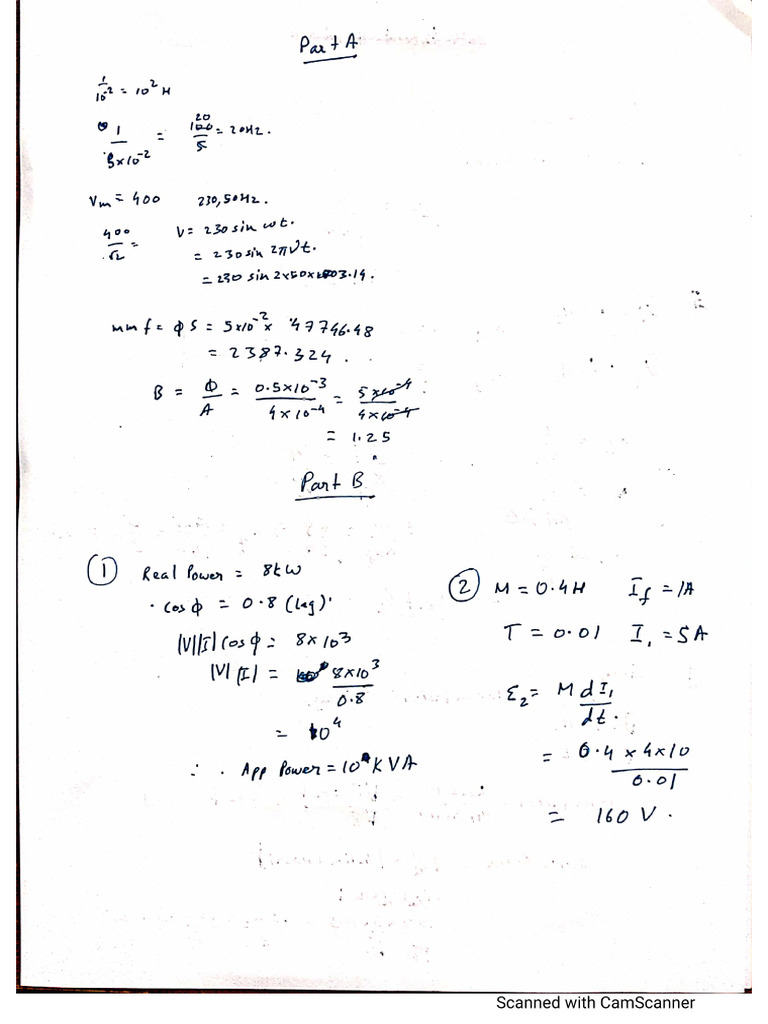 Part A
1/10^-2 = 10^2 H
1/5×10^-2 = 100/5 = 20Hz.
20
Vm = 400 230, 50Hz.
400/√2 = V = 230 sin ωt.
= 230 sin 2πνt.
= 230 sin 2×50× 3.14.
mmf = φ S = 5×10^-2 × 47746.48
= 2387.324 .
B = Φ/A = 0.5×10^-3/4×10^-4 = 5×10^-4/4×10^-4
= 1.25
Part B
① Real Power = 8kW
cos φ = 0.8 (lag)
|V||I| cos φ = 8×10^3
|V| |I| = 8×10^3/0.8
= 10^4
∴ App Power = 10 KVA
② M = 0.4H I_f = 1A
T = 0.01 I_1 = 5A
ε_2 = M dI_1/dt.
= 0.4 × 4×10/0.01
= 160 V .
Scanned with CamScanner